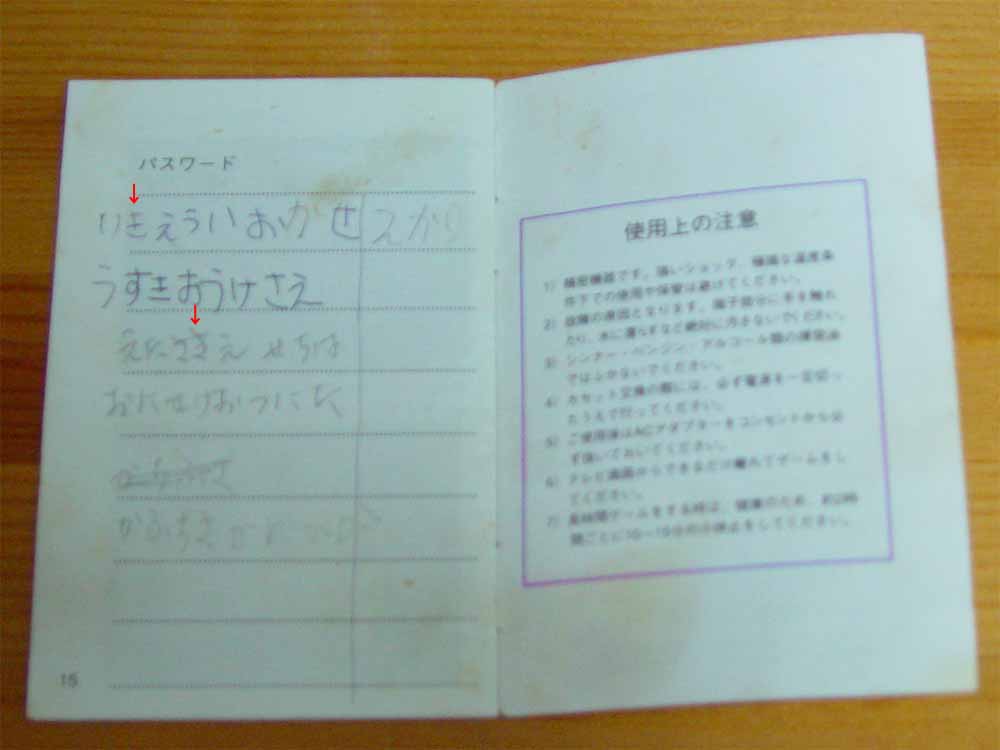 パスワード
りきえういおかせ えかり
うすきおうけさえ
えにさきえ せちは
おにせけおつにた
15
使用上の注意
1) 精密機器です。強いショック、極端な温度条
件下での使用や保管は避けてください。
2) 故障の原因となります。端子部分に手を触れ
たり、水に濡らすなど絶対に汚さないでください。
3) シンナー・ベンジン・アルコール類の揮発油
ではふかないでください。
4) カセット交換の際には、必ず電源を一定切っ
たうえで行ってください。
5) ご使用後はACアダプターをコンセントから必
ず抜いておいてください。
6) テレビ画面からできるだけ離れてゲームをし
てください。
7) 長時間ゲームをする時は、健康のため、約2時
間ごとに10〜15分の小休止をしてください。